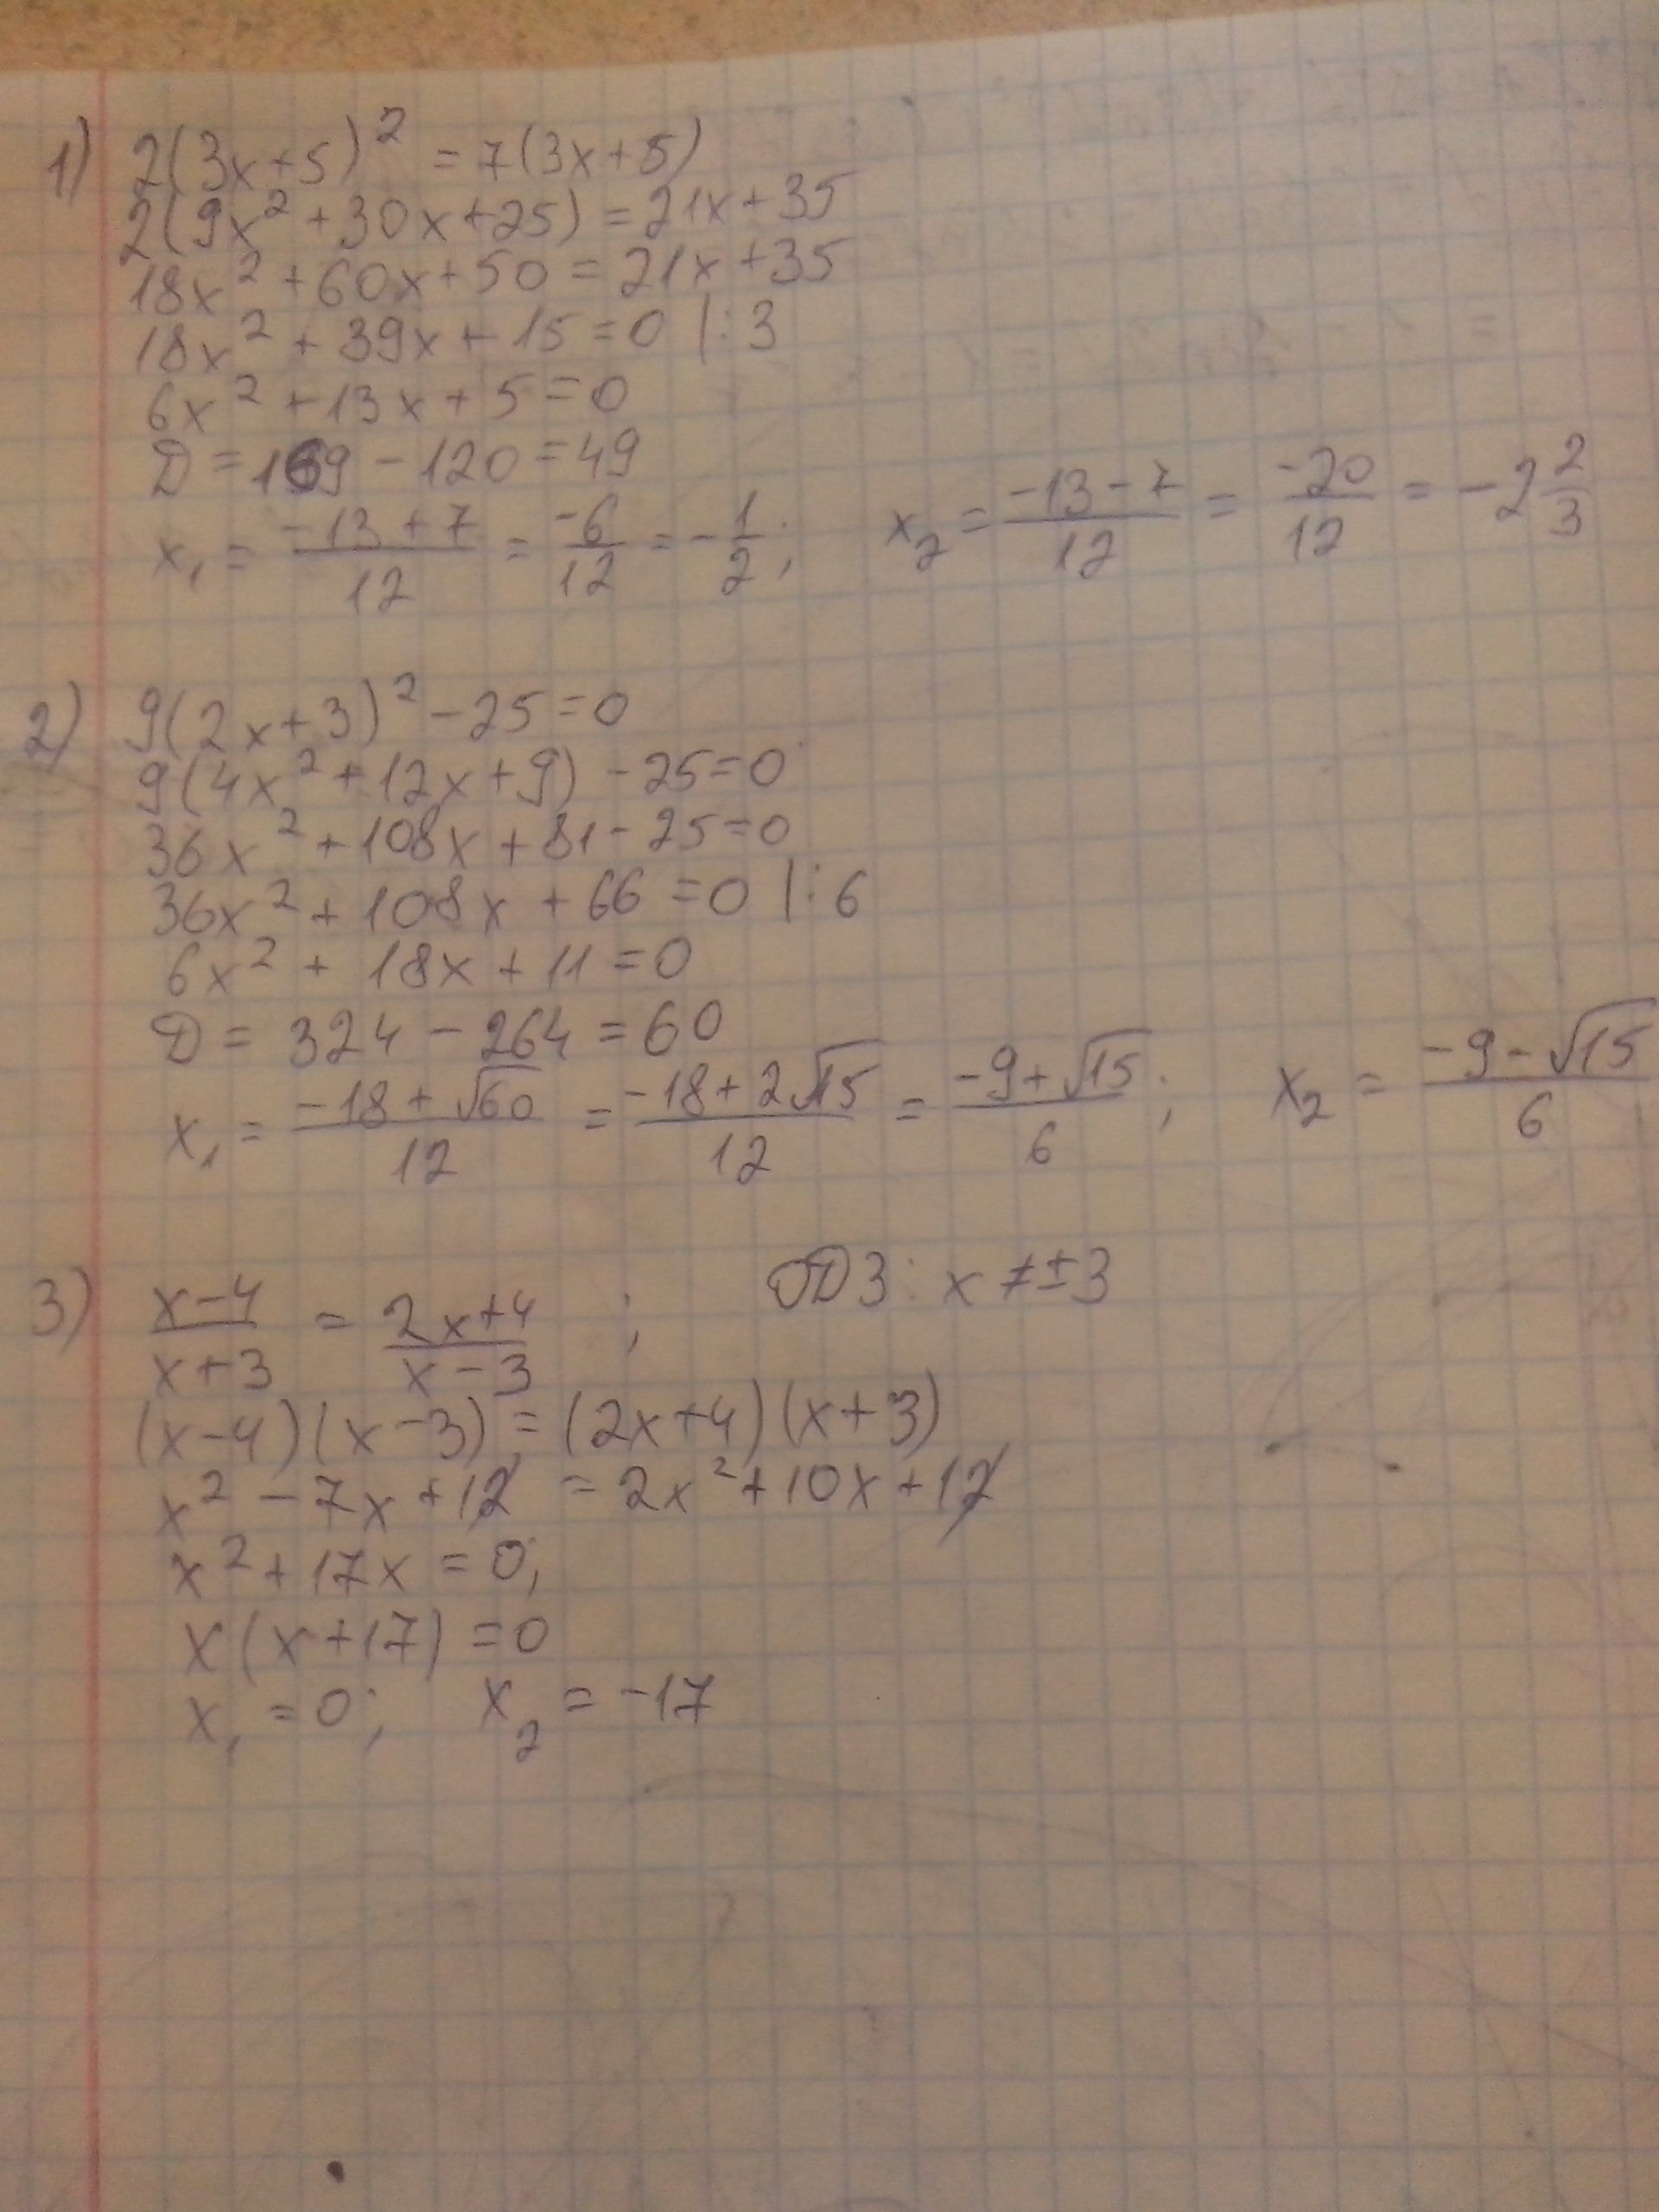 1) 2(3x+5)² = 7(3x+5)
2(9x²+30x+25) = 21x+35
18x²+60x+50 = 21x+35
18x²+39x+15=0 |:3
6x²+13x+5=0
D=169-120=49
x₁ = (-13+7)/12 = -6/12 = -1/2; x₂ = (-13-7)/12 = -20/12 = -2 2/3
2) 9(2x+3)²-25=0
9(4x²+12x+9)-25=0
36x²+108x+81-25=0
36x²+108x+66=0 |:6
6x²+18x+11=0
D = 324-264=60
x₁ = (-18+√60)/12 = (-18+2√15)/12 = (-9+√15)/6; x₂ = (-9-√15)/6
3) (x-4)/(x+3) = (2x+4)/(x-3); ОДЗ: x≠±3
(x-4)(x-3) = (2x+4)(x+3)
x²-7x+12 = 2x²+10x+12
x²+17x=0;
x(x+17)=0
x₁=0; x₂=-17